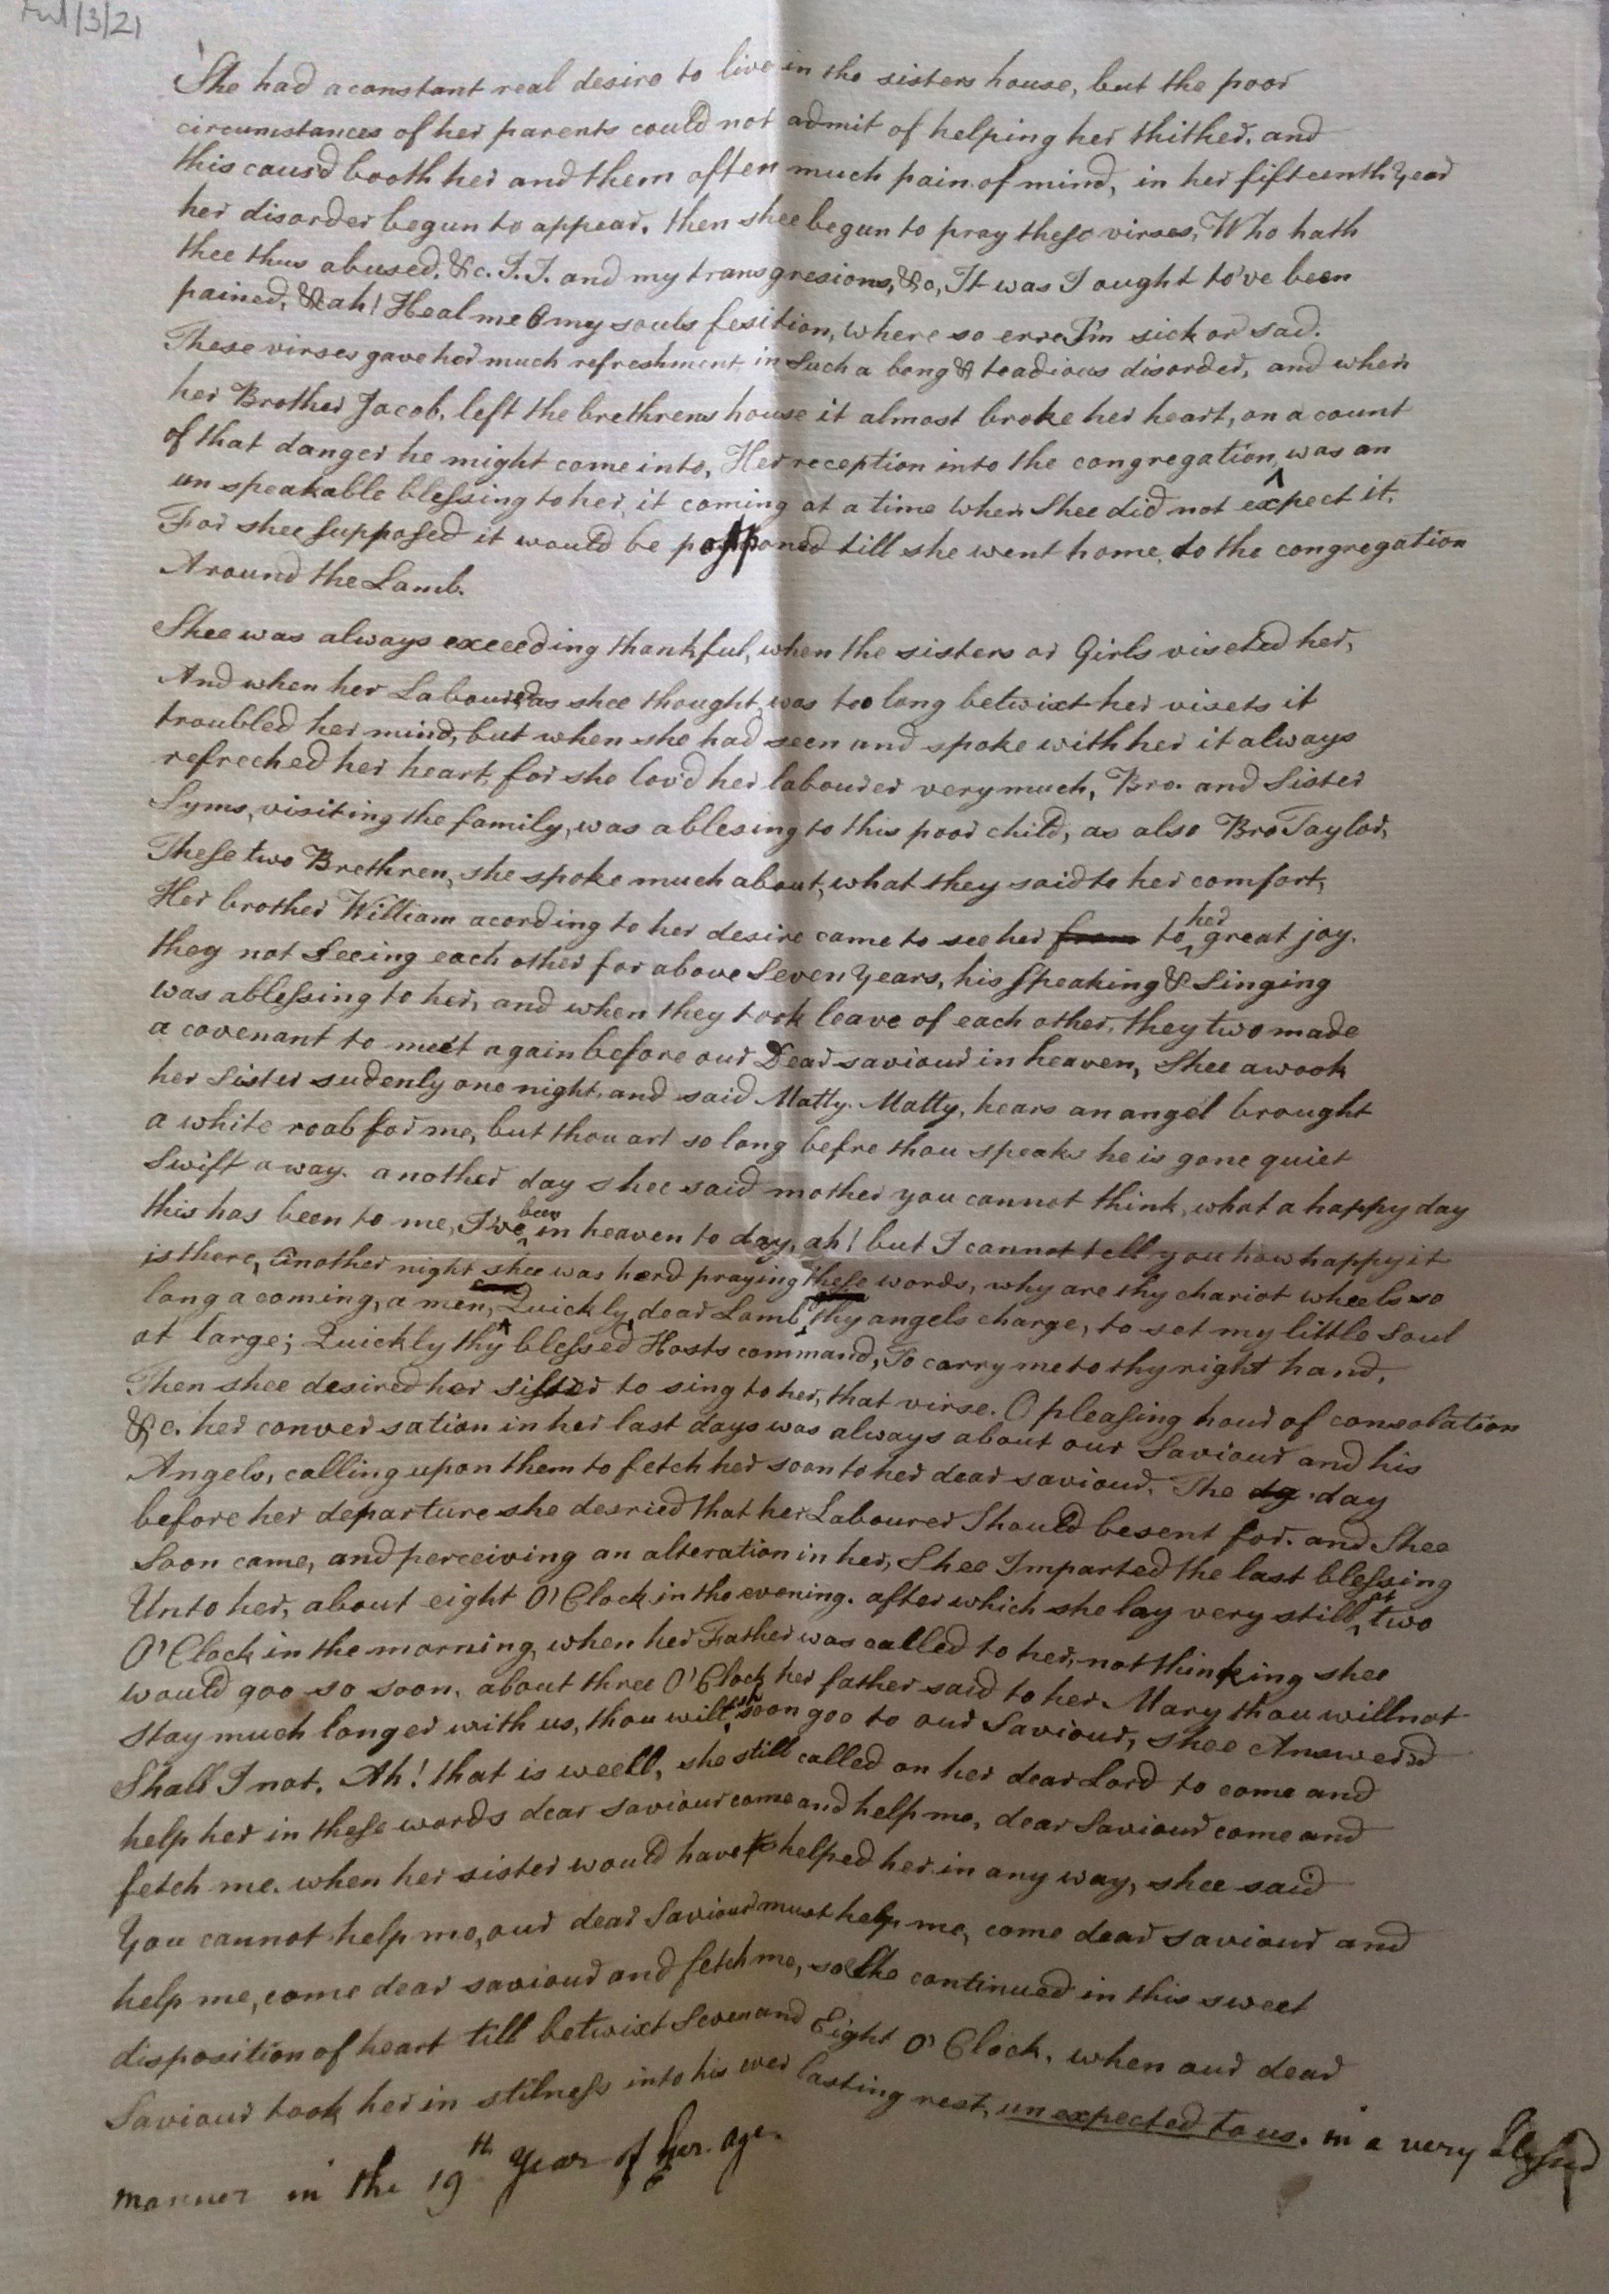 Ful/3/21
She had a constant real desire to live in the sisters house, but the poor
circumstances of her parents could not admit of helping her thither. and
this caus'd booth her and them often much pain of mind, in her fifteenth Year
her disorder begun to appear. then shee begun to pray these virses, Who hath
thee thus abused, &c. I. I. and my transgresions, &c, It was I ought to've been
pained, &c ah! Heal me O my souls fesition, where so erre I'm sick or sad.
These virses gave her much refreshment, in such a long & teadious disorder, and when
her Brother Jacob, left the brethrens house it almost broke her heart, on a count
of that danger he might come into, Her reception into the congregation, was an
un speakable blessing to her, it coming at a time when Shee did not expect it.
For shee supposed it would be postponed till she went home, to the congregation
Around the Lamb.
Shee was always exceeding thankful, when the sisters or Girls viseted her,
And when her Labourer, as shee thought, was too long betwixt her visets it
troubled her mind, but when she had seen and spoke with her it always
refreched her heart, for she lov'd her labourer very much, Bro. and Sister
Syms, visiting the family, was a blesing to this poor child, as also Bro Taylor,
These two Brethren, she spoke much about, what they said to her comfort,
Her brother William acording to her desire came to see her from to her great joy.
they not seeing each other for above Seven Years, his speaking & Singing
was a blessing to her, and when they took leave of each other, they two made
a covenant to meet again before our Dear saviour in heaven, Shee awook
her Sister sudenly one night, and said Matty. Matty, hears an angel brought
a white roab for me, but thou art so long befre thou speaks he is gone quiet
Swift away. another day shee said mother you cannot think, what a happy day
this has been to me, I've been in heaven to day, ah! but I cannot tell you how happy it
is there, another night shee was herd praying these words, why are thy chariot wheels so
long a coming, a men, Quickly, dear Lamb, thy angels charge, to set my little Soul
at large; Quickly thy blessed Hosts command, To carry me to thy right hand,
Then shee desired her sister to sing to her, that virse. O pleasing hour of consolation
&c. her conversation in her last days was always about our Saviour and his
Angels, calling upon them to fetch her soon to her dear saviour. The day
before her departure she desried that her Labourer Should be sent for. and Shee
Soon came, and perceiving an alteration in her, Shee Imparted the last blessing
Unto her, about eight O'Clock in the evening. after which she lay very still, two
O'Clock in the morning, when her Father was called to her, not thinking shee
would goo so soon. about three O'Clock her father said to her. Mary thou will not
stay much longer with us, thou wilt soon goo to our Saviour, shee Answered
Shall I not. Ah! that is weell, she still called on her dear Lord to come and
help her in these words dear saviour come and help me, dear Saviour come and
fetch me. when her sister would have helped her in any way, shee said
You cannot help me, our dear Saviour must help me, come dear saviour and
help me, come dear saviour and fetch me, so she continued in this sweet
disposition of heart till betwixt Seven and Eight O'Clock. when our dear
Saviour took her in stilness into his ever lasting rest, un expected to us. in a very blessed
manner in the 19th Year of her age.